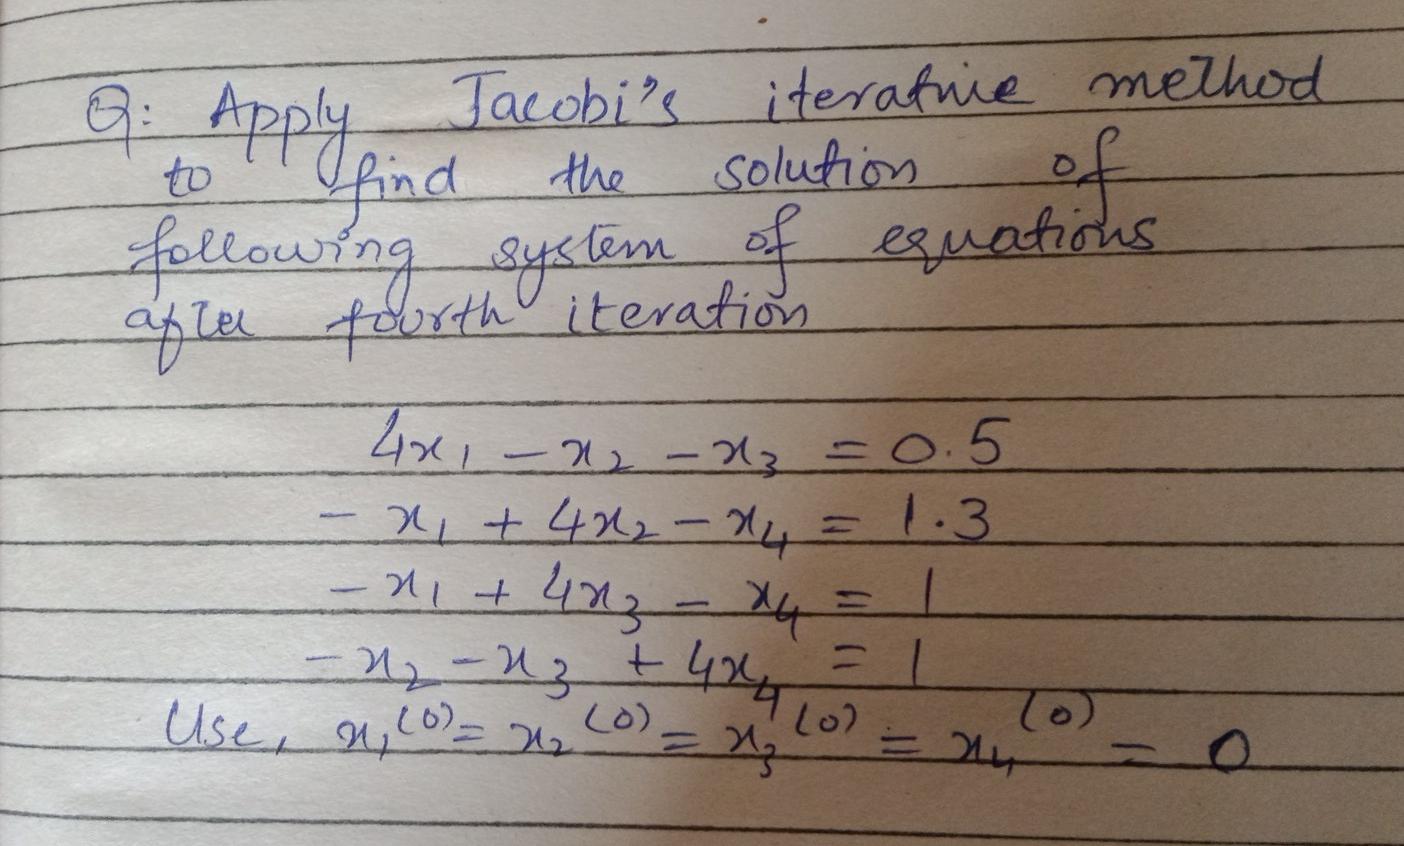 Q: Apply Jacobi's iterative method
to find the solution of
following system of equations
after fourth iteration
4x₁ - x₂ - x₃ = 0.5
- x₁ + 4x₂ - x₄ = 1.3
- x₁ + 4x₃ - x₄ = 1
- x₂ - x₃ + 4x₄ = 1
Use, x₁⁽⁰⁾ = x₂⁽⁰⁾ = x₃⁽⁰⁾ = x₄⁽⁰⁾ = 0